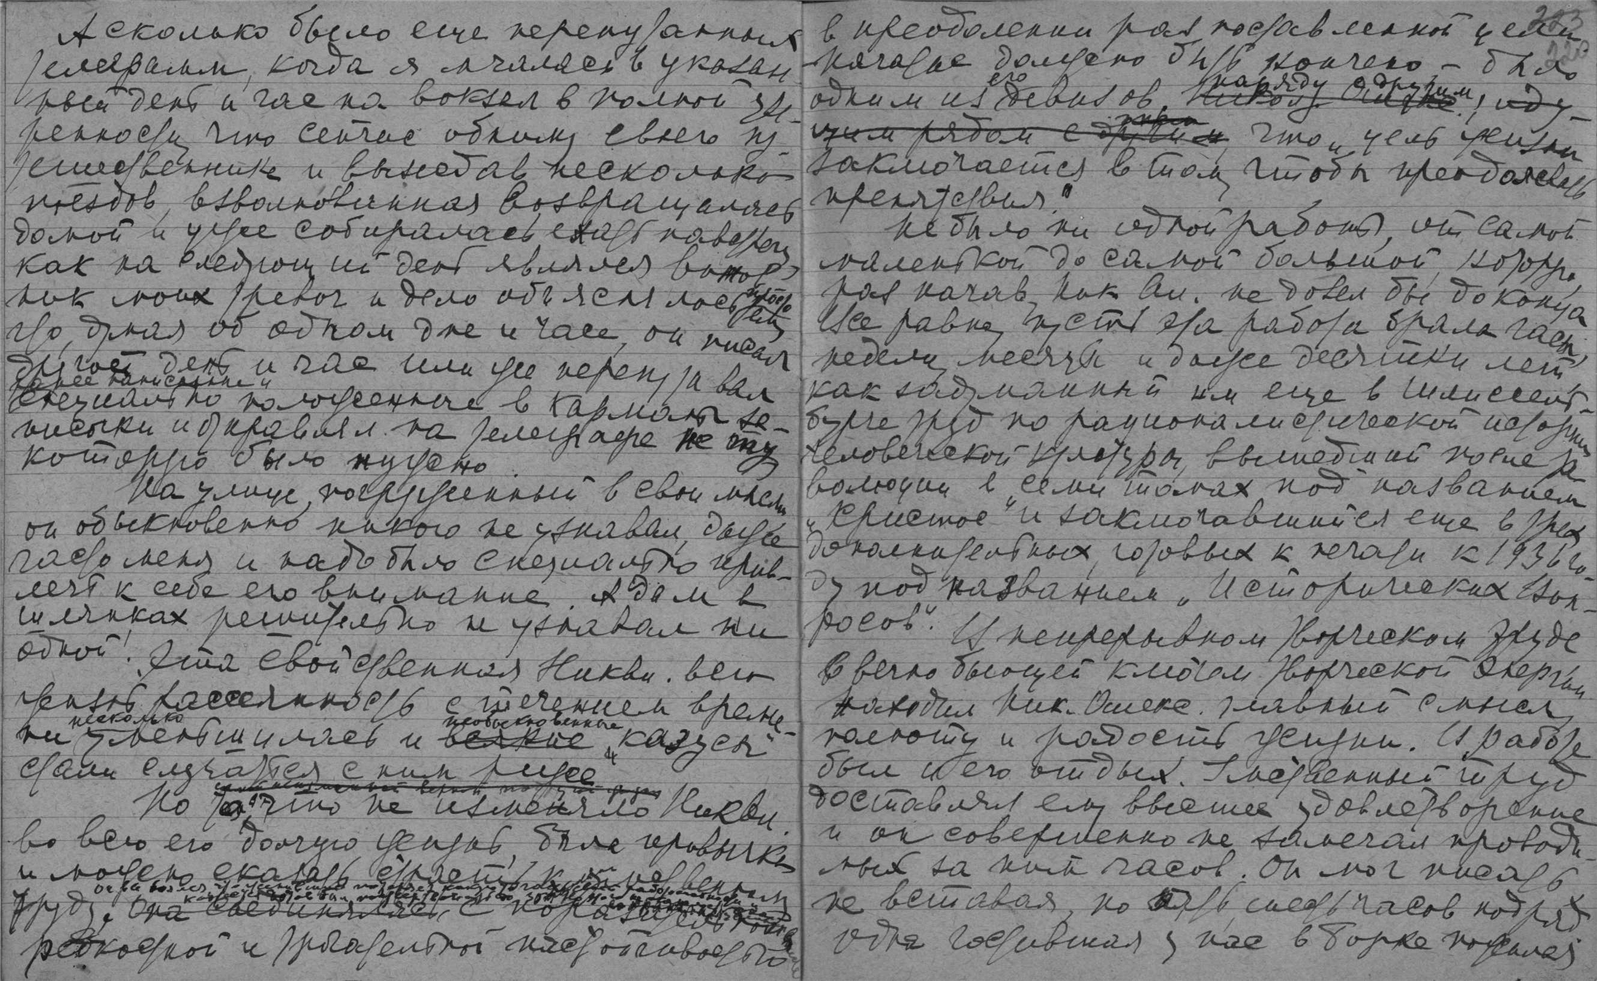 А сколько было еще перепутанных
телеграмм, когда я мчалась в указан-
ный день и час на вокзал в полной уве-
ренности, что сейчас обниму своего пу-
тешественника и выжидав несколько
поездов, взволнованная возвращалась
домой и уже собиралась ехать на
как на следующий день являлся винов-
ник моих тревог и дело объяснялось
что, думая об одном дне и часе, он писал
другой день и час или же перепутывал
ранее написанные
специально положенные в карманы за-
писки и отправлял на телеграфе не ту,
которую было нужно.
На улице, погруженный в свои мысли
он обыкновенно никого не узнавал, даже
часто меня и надо было специально прив-
лечь к себе его внимание. А дам в
шляпках решительно не узнавал ни
одной! Эта свойственная Ник. всю
жизнь рассеянность с течением време-
несколько необыкновенные
ни уменьшилась и всякие "казусы"
стали случаться с ним реже
Но что не изменяло
во всю его долгую жизнь, была привычка
и можно сказать страсть к умственному
труду. Она соединялась с
редкостной и настойчивостью
в преодолении раз поставленной цели.
Начатое должно быть кончено – было
его наряду с другим
одним из девизов,
щим рядом с другим, что "цель жизни
заключается в том, чтобы преодолевать
препятствия."
Не было ни одной работы, от самой
маленькой до самой большой, которую
раз начав, Ник. Ал. не довел бы до конца
Все равно, пусть эта работа брала часы,
недели, месяцы и даже десятки лет
как задуманный им еще в Шлиссель-
бурге труд по рационалистической истории
человеческой культуры, вышедший после ре-
волюции в семи томах под названием
"Христос" и заключавшийся еще в трех
дополнительных, готовых к печати к 1936 го-
ду под названием "Исторических Воп-
росов".
В непрерывном творческом труде
в вечно бьющей ключом творческой энергии
находил Ник. Алекс. главный смысл,
полноту и радость жизни. В работе
был и его отдых. Умственный труд
доставлял ему высшее удовлетворение
и он совершенно не замечал проводи-
мых за ним часов. Он мог писать
не вставая, по шесть часов подряд
Одна гостившая у нас в Борке пожилая